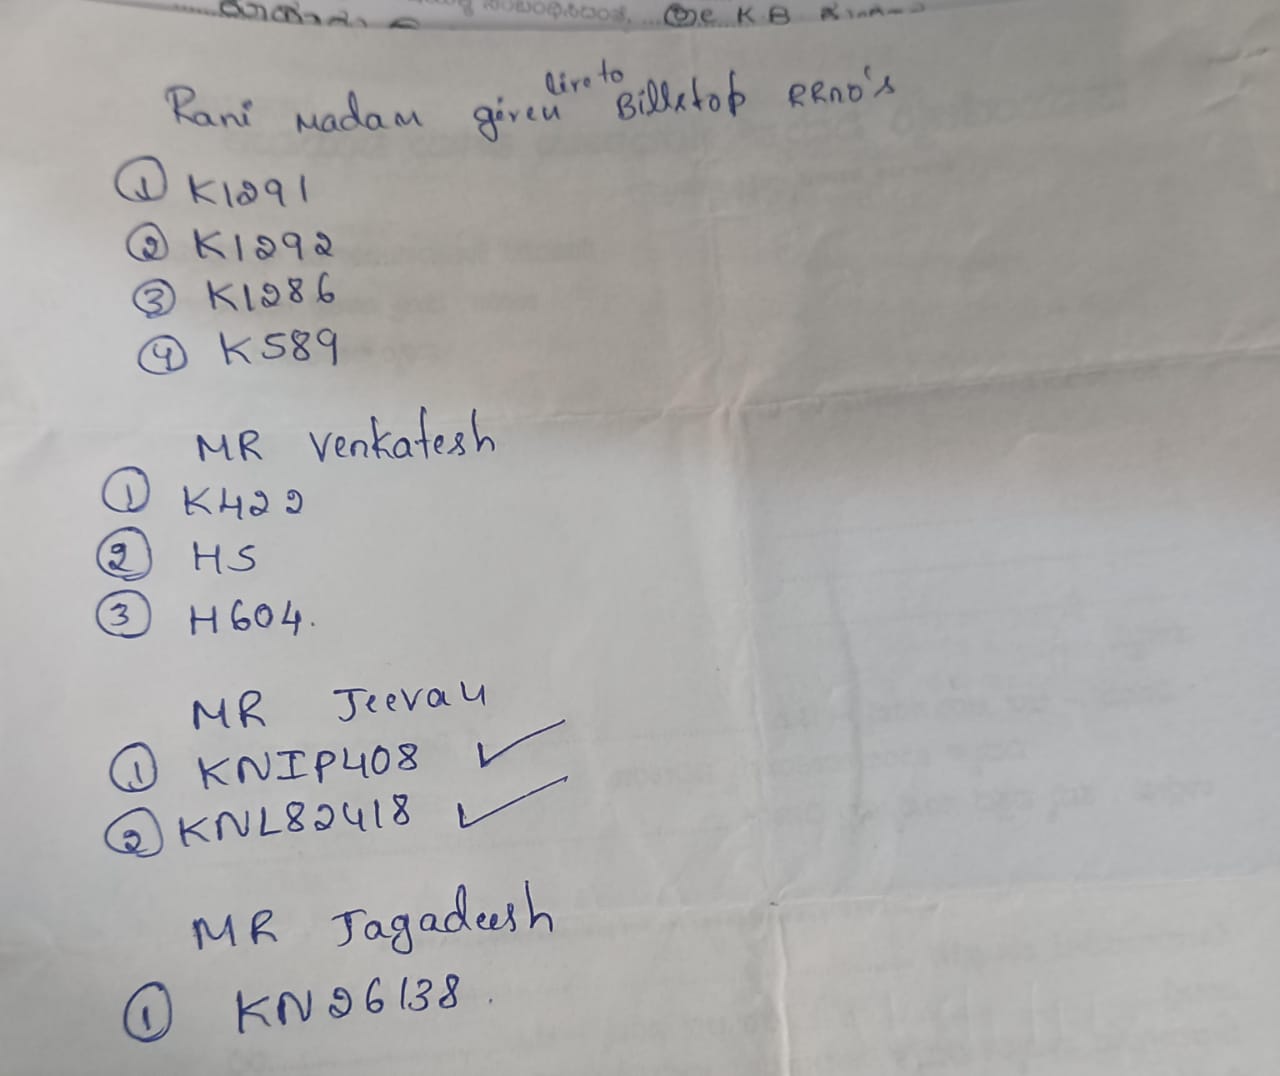 KB
Rani Madam given live to Billstop RRno's
① K1291
② K1292
③ K1286
④ K589
MR Venkatesh
① K422
② HS
③ H604.
MR Jeevan
① KNIP408 ✓
② KNL82418 ✓
MR Jagadeesh
① KN26138.